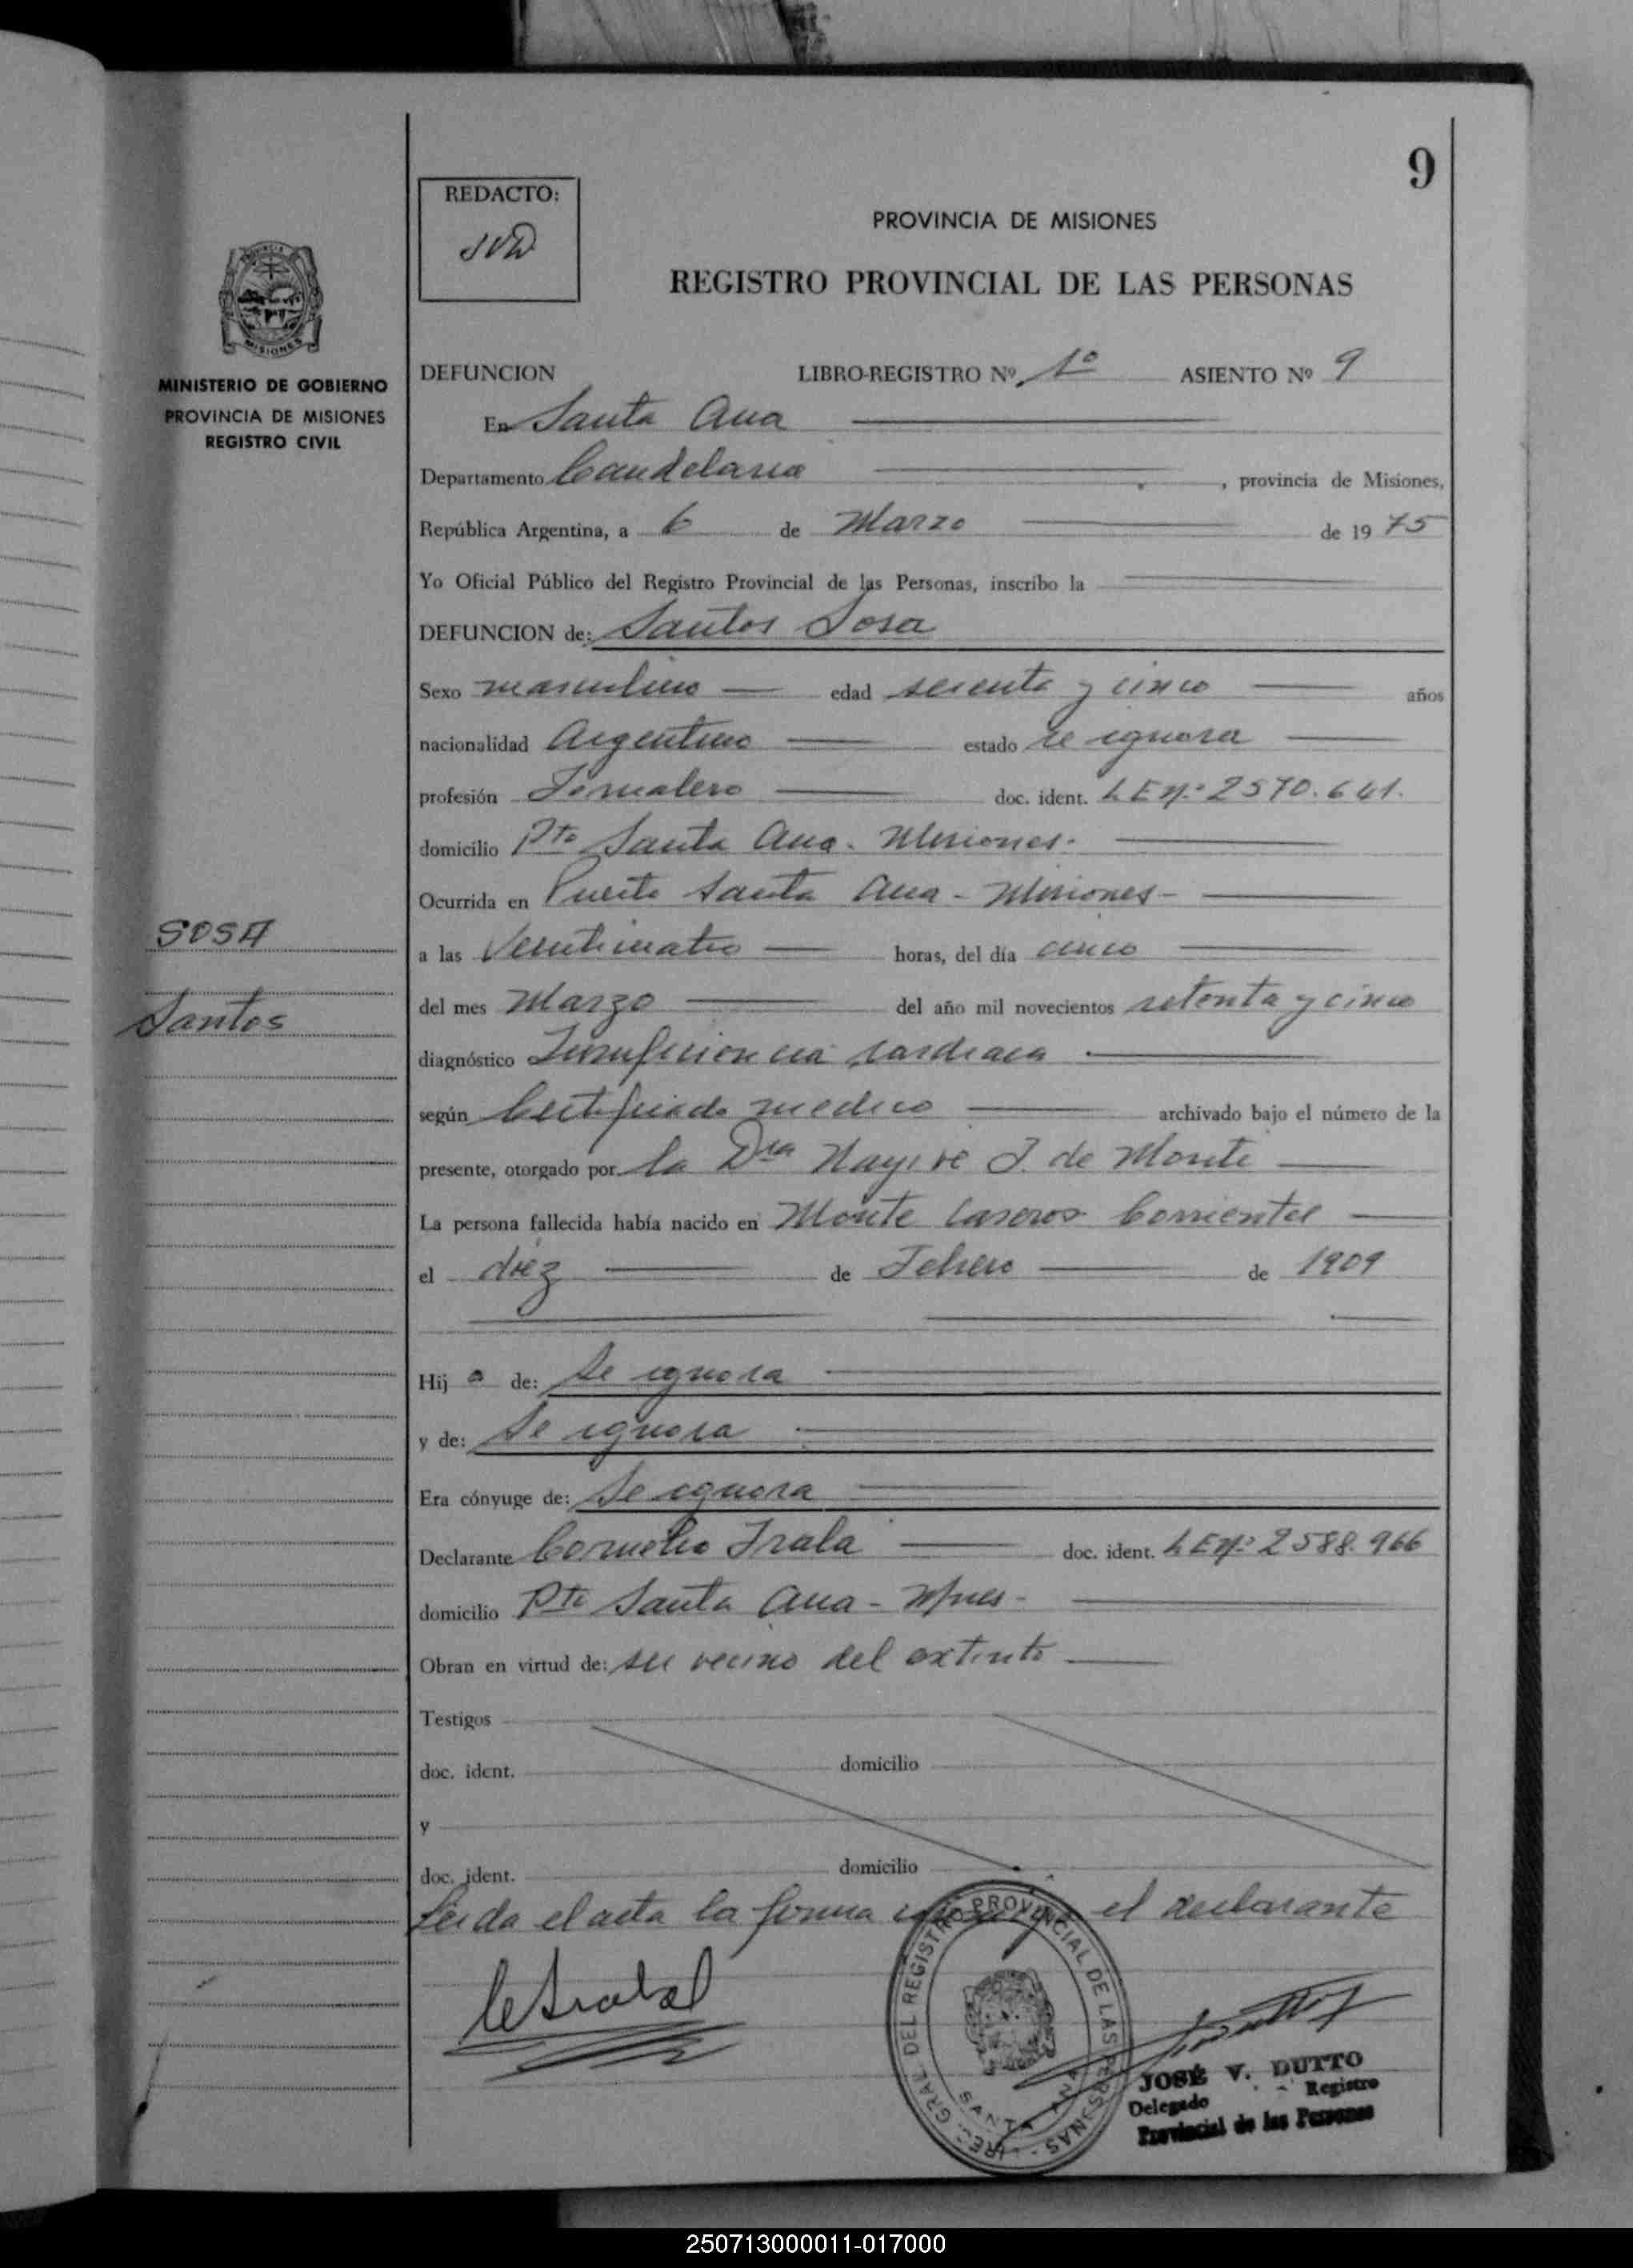 9
REDACTO:
JVD
PROVINCIA DE MISIONES
REGISTRO PROVINCIAL DE LAS PERSONAS
MISIONES
MINISTERIO DE GOBIERNO
PROVINCIA DE MISIONES
REGISTRO CIVIL
DEFUNCION LIBRO-REGISTRO Nº 1º ASIENTO Nº 9
En Santa Ana
Departamento Candelaria , provincia de Misiones,
República Argentina, a 6 de Marzo de 1975
Yo Oficial Público del Registro Provincial de las Personas, inscribo la
DEFUNCION de: Santos Sosa
Sexo masculino edad sesenta y cinco años
nacionalidad Argentino estado se ignora
profesión Jornalero doc. ident. LE Nº 2570.641.
domicilio Pto Santa Ana. Misiones.
Ocurrida en Puerto Santa Ana - Misiones -
SOSA
Santos
a las Veinticuatro horas, del día cinco
del mes Marzo del año mil novecientos setenta y cinco
diagnóstico Insuficiencia cardiaca
según Certificado medico archivado bajo el número de la
presente, otorgado por la Dra Nayive J. de Monte
La persona fallecida había nacido en Monte Caseros Corrientes
el diez de Febrero de 1909
Hij o de: Se ignora
y de: Se ignora
Era cónyuge de: Se ignora
Declarante Cornelio Irala doc. ident. LE Nº 2588.966
domicilio Pto Santa Ana - Mnes -
Obran en virtud de: ser vecino del extinto
Testigos
doc. ident. domicilio
y
doc. ident. domicilio
Leida el acta la firma el declarante
REG. GRAL. DEL REGISTRO PROVINCIAL DE LAS PERSONAS
SANTA ANA
JOSÉ V. DUTTO
Delegado Registro
Provincial de las Personas
250713000011-017000